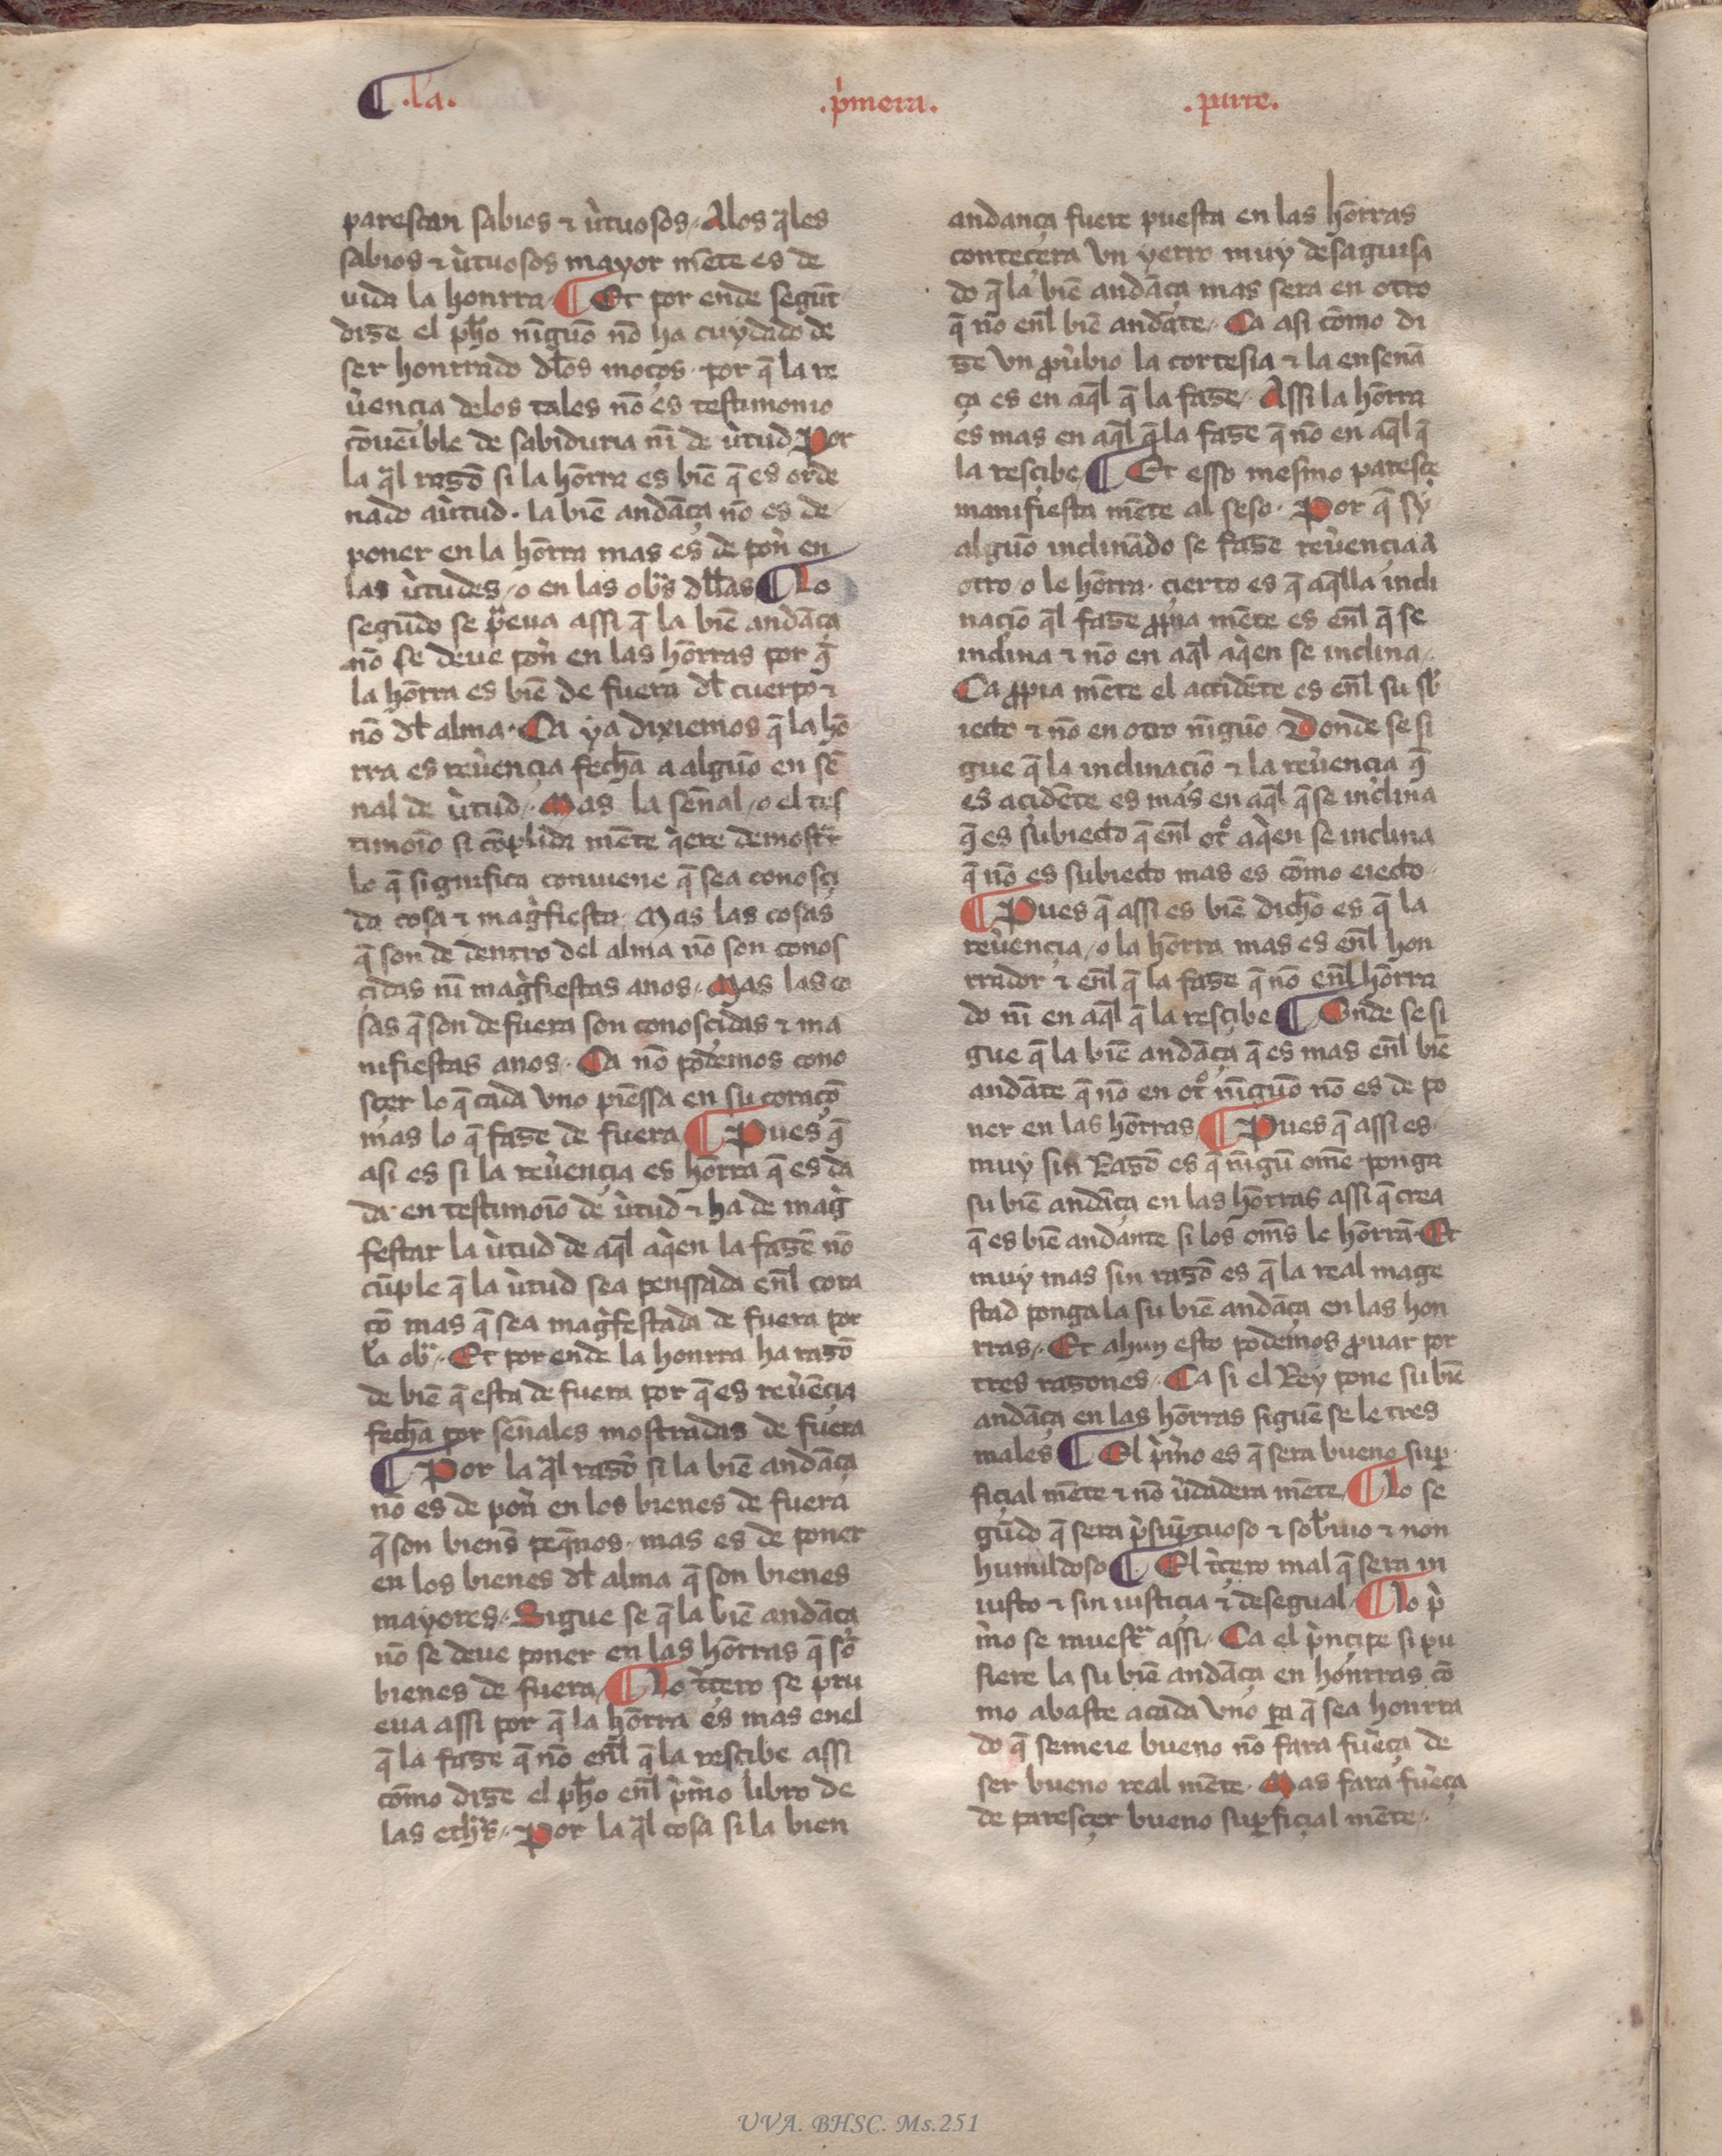 ¶ .la. .p̀mera. .parte.
parescan sabios ⁊ ùtuosos Alos q̃les
sabios ⁊ ùtuosos mayor mẽte es de
uida la honrra ¶ Et por ende segũt
dize el ph̃o nĩguõ nõ ha cuydado de
ser honrrado dl̃os moços por q̃ la re
ùençia delos tales nõ es testimonio
cõueĩble de sabiduria nĩ de ùtud Por
la q̃l razõ si la hõrra es biẽ q̃ es orde
nado aùtud . la biẽ andãça nõ es de
poner en la hõrra mas es de pon̄ en
las ùtudes / o en las ob̃s dl̃las ¶ Lo
segũdo se p̃eua assi q̃ la biẽ andãça
nõ se deue pon̄ en las hõrras por q̃
la hõrra es biẽ de fuera dl̃ cuerpo ⁊
nõ dl̃ alma . Ca ya dixiemos q̃ la hõ
rra es reùençia fech̃a a alguõ en sẽ
nal de ùtud . Mas la señal / o el tes
timoĩo si cõplida mẽte q̀ere demostr̃
lo q̃ significa conuiene q̃ sea conosçi
da cosa ⁊ mag̀fiesta Mas las cosas
q̃ son de dentro del alma nõ son conos
çidas nĩ mag̀fiestas anos . Mas las co
sas q̃ son de fuera son conosçidas ⁊ ma
nifiestas anos . Ca nõ podemos cono
sçer lo q̃ cada vno piẽssa en su coraçõ
mas lo q̃ faze de fuera ¶ Pues q̃
asi es si la reùençia es hõrra q̃ es da
da en testimoĩo de ùtud ⁊ ha de mag̀
festar la ùtud de aq̃l aq̀en la fazẽ nõ
cũple q̃ la ùtud sea penssada enl̃ cora
çõ mas q̃ sea mag̀festada de fuera por
la ob̃ . Et por ende la honrra ha razõ
de biẽ q̃ esta de fuera por q̃ es reùẽçia
fech̃a por señales mostradas de fuera
¶ Por la q̃l razõ si la biẽ andãça
nõ es de pon̄ en los bienes de fuera
q̃ son bienẽs peq̃nos . mas es de poner
en los bienes dl̃ alma q̃ son bienes
mayores . Sigue se q̃ la biẽ andãça
nõ se deue poner en las hõrras q̃ sõ
bienes de fuera ¶ Lo t̀çero se pru
eua assi por q̃ la hõrra es mas enel
q̃ la faze q̃ nõ enl̃ q̃ la resçibe assi
cõmo dize el ph̃o enl̃ p̀mo libro de
las eth̃ . Por la q̃l cosa si la bien
andança fuere puesta en las hõrras
conteçera vn yerro muy desaguisa
do q̃ la biẽ andãça mas sera en otro
q̃ nõ enl̃ biẽ andãte . Ca asi cõmo di
ze vn ꝓùbio la cortesia ⁊ la enseñã
ça es en aq̃l q̃ la faze . Assi la hõrra
es mas en aq̃l q̃ la faze q̃ nõ en aq̃l q̃
la resçibe ¶ Et esso mesmo paresçe
manifiesta mẽte al seso . Por q̃ sy
alguõ inclinãdo se faze reùençia a
otro / o le hõrra . çierto es q̃ aq̃lla incli
naçiõ q̃l faze ꝓpia mẽte es enl̃ q̃ se
inclina ⁊ nõ en aq̃l aq̀en se inclina .
Ca ꝓpia mẽte el acçidẽte es enl̃ su sb̃
iecto ⁊ nõ en otro nĩguõ Donde se si
gue q̃ la inclinaçiõ ⁊ la reùençia q̃
es açidẽte es mas en aq̃l q̃ se inclina
q̃ es subiecto q̃ enl̃ ot̊ aq̀en se inclina
q̃ nõ es subiecto mas es cõmo eiecto .
¶ Pues q̃ assi es biẽ dich̃o es q̃ la
reùençia / o la hõrra mas es enl̃ hon
rrador ⁊ enl̃ q̃ la faze q̃ nõ enl̃ hõrra
do nĩ en aq̃l q̃ la resçibe ¶ Onde se si
gue q̃ la biẽ andãça q̃ es mas enl̃ biẽ
andãte q̃ nõ en ot̊ nĩguõ nõ es de po
ner en las hõrras ¶ Pues q̃ assi es
muy sin Razõ es q̃ nĩgũ omẽ ponga
su biẽ andãça en las hõrras assi q̃ crea
q̃ es biẽ andante si los om̃s le hõrrã . Et
muy mas sin razõ es q̃ la real mage
stad ponga la su biẽ andãça en las hon
rras . Et ahun esto podemos ꝓuar por
tres razones . Ca si el Rey pone su biẽ
andãça en las hõrras siguẽ se le tres
males ¶ El p̀mo es q̃ sera bueno suꝑ
fiçial mẽte ⁊ nõ ùdadera mẽte ¶ Lo se
gũdo q̃ sera p̀sũptuoso ⁊ sob̃uio ⁊ non
humildoso ¶ El t̀çero mal q̃ sera in
iusto ⁊ sin iustiçia ⁊ desegual ¶ Lo p̀
mo se muestr̃ assi . Ca el p̀nçipe si pu
siere la su biẽ andãça en honrras cõ
mo abaste acada vno ꝑa q̃ sea honrra
do q̃ semeie bueno nõ fara fùeça de
ser bueno real mẽte . Mas fara fùeça
de paresçer bueno suꝑfiçial mẽte .
UVA. BHSC. Ms.251